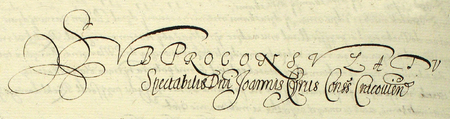 SVB PROCONSVLATV
Spectabilis Dni Joannis Cyrus Conss Cracovien